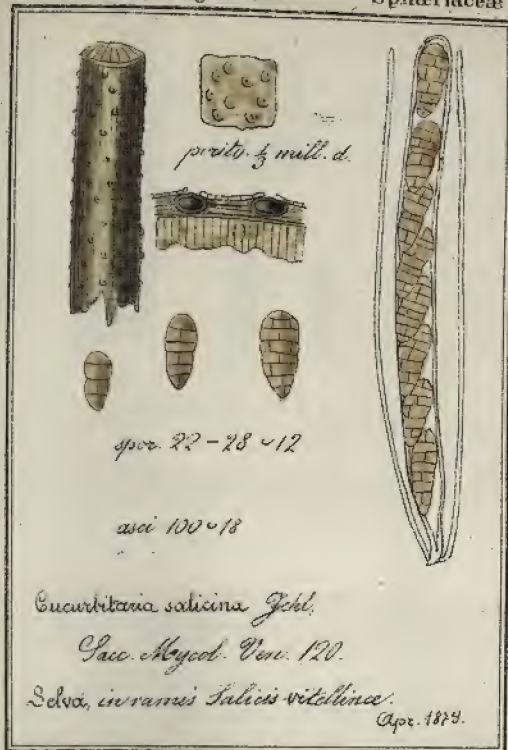 Sphæriaceæ
perith. ⅓ mill. d.
spor. 22 – 28 ⌣ 12
asci 100 ⌣ 18
Cucurbitaria salicina Fckl.
Sacc. Mycol. Ven. 120.
Selva, in ramis Salicis vitellinæ.
Apr. 1874.